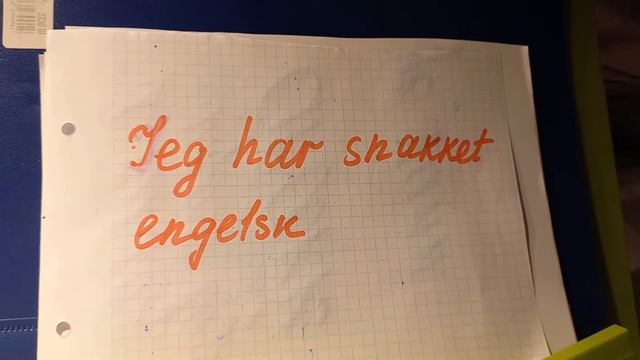 Jeg har snakket
engelsk